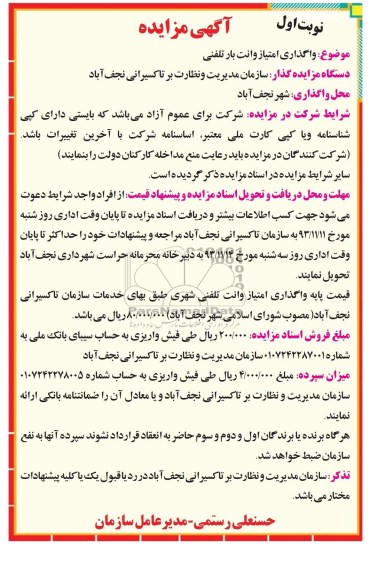 نوبت اول
آگهی مزایده
موضوع: واگذاری امتیاز وانت بار تلفنی
دستگاه مزایده گذار: سازمان مدیریت و نظارت بر تاکسیرانی نجف آباد
محل واگذاری: شهر نجف آباد
شرایط شرکت در مزایده: شرکت برای عموم آزاد می‌باشد که بایستی دارای کپی
شناسنامه و یا کپی کارت ملی معتبر، اساسنامه شرکت با آخرین تغییرات باشد.
(شرکت کنندگان در مزایده باید رعایت منع مداخله کارکنان دولت را بنمایند)
سایر شرایط مزایده در اسناد مزایده ذکر گردیده است.
مهلت و محل دریافت و تحویل اسناد مزایده و پیشنهاد قیمت: از افراد واجد شرایط دعوت
می‌شود جهت کسب اطلاعات بیشتر و دریافت اسناد مزایده تا پایان وقت اداری روز شنبه
مورخ ۹۳/۱۱/۱۱ به سازمان تاکسیرانی نجف آباد مراجعه و پیشنهادات خود را حداکثر تا پایان
وقت اداری روز سه شنبه مورخ ۹۳/۱۱/۱۴ به دبیرخانه محرمانه حراست شهرداری نجف آباد
تحویل نمایند.
قیمت پایه واگذاری امتیاز وانت تلفنی شهری طبق بهای خدمات سازمان تاکسیرانی
نجف آباد (مصوب شورای اسلامی شهر نجف آباد) ۸۰/۰۰۰/۰۰۰ ریال می باشد.
مبلغ فروش اسناد مزایده: ۲۰۰/۰۰۰ ریال طی فیش واریزی به حساب سیبای بانک ملی به
شماره ۰۱۰۷۲۴۲۲۸۷۰۰۱ سازمان مدیریت و نظارت بر تاکسیرانی نجف آباد
میزان سپرده: مبلغ ۴/۰۰۰/۰۰۰ ریال طی فیش واریزی به حساب شماره ۰۱۰۷۲۴۲۲۷۸۰۰۵
سازمان مدیریت و نظارت بر تاکسیرانی نجف آباد و یا معادل آن را ضمانتنامه بانکی ارائه
نمایند.
هرگاه برنده یا برندگان اول و دوم و سوم حاضر به انعقاد قرارداد نشوند سپرده آنها به نفع
سازمان ضبط خواهد شد.
تذکر: سازمان مدیریت و نظارت بر تاکسیرانی نجف آباد در رد یا قبول یک یا کلیه پیشنهادات
مختار می باشد.
حسنعلی رستمی - مدیر عامل سازمان